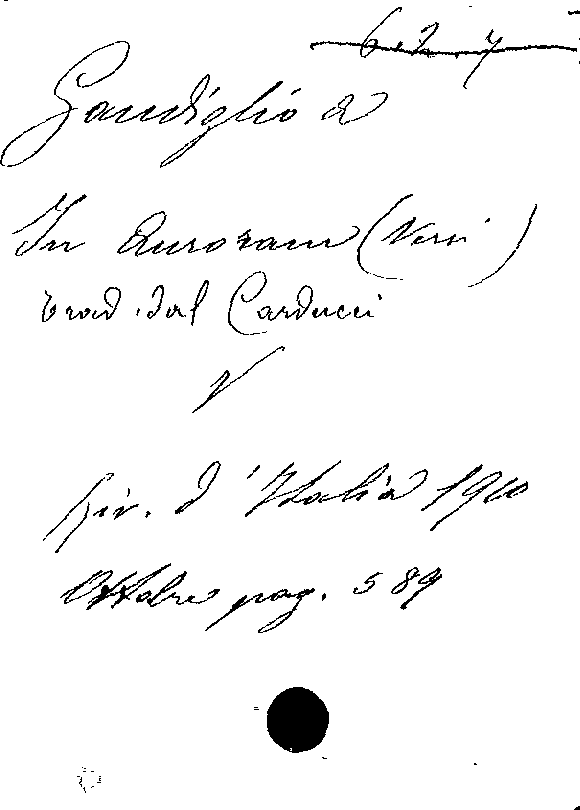 6.2.7
Gandiglio A
In Auroram (Versi)
trad. dal Carducci
V
Riv. d'Italia 1910
Ottobre pag. 589